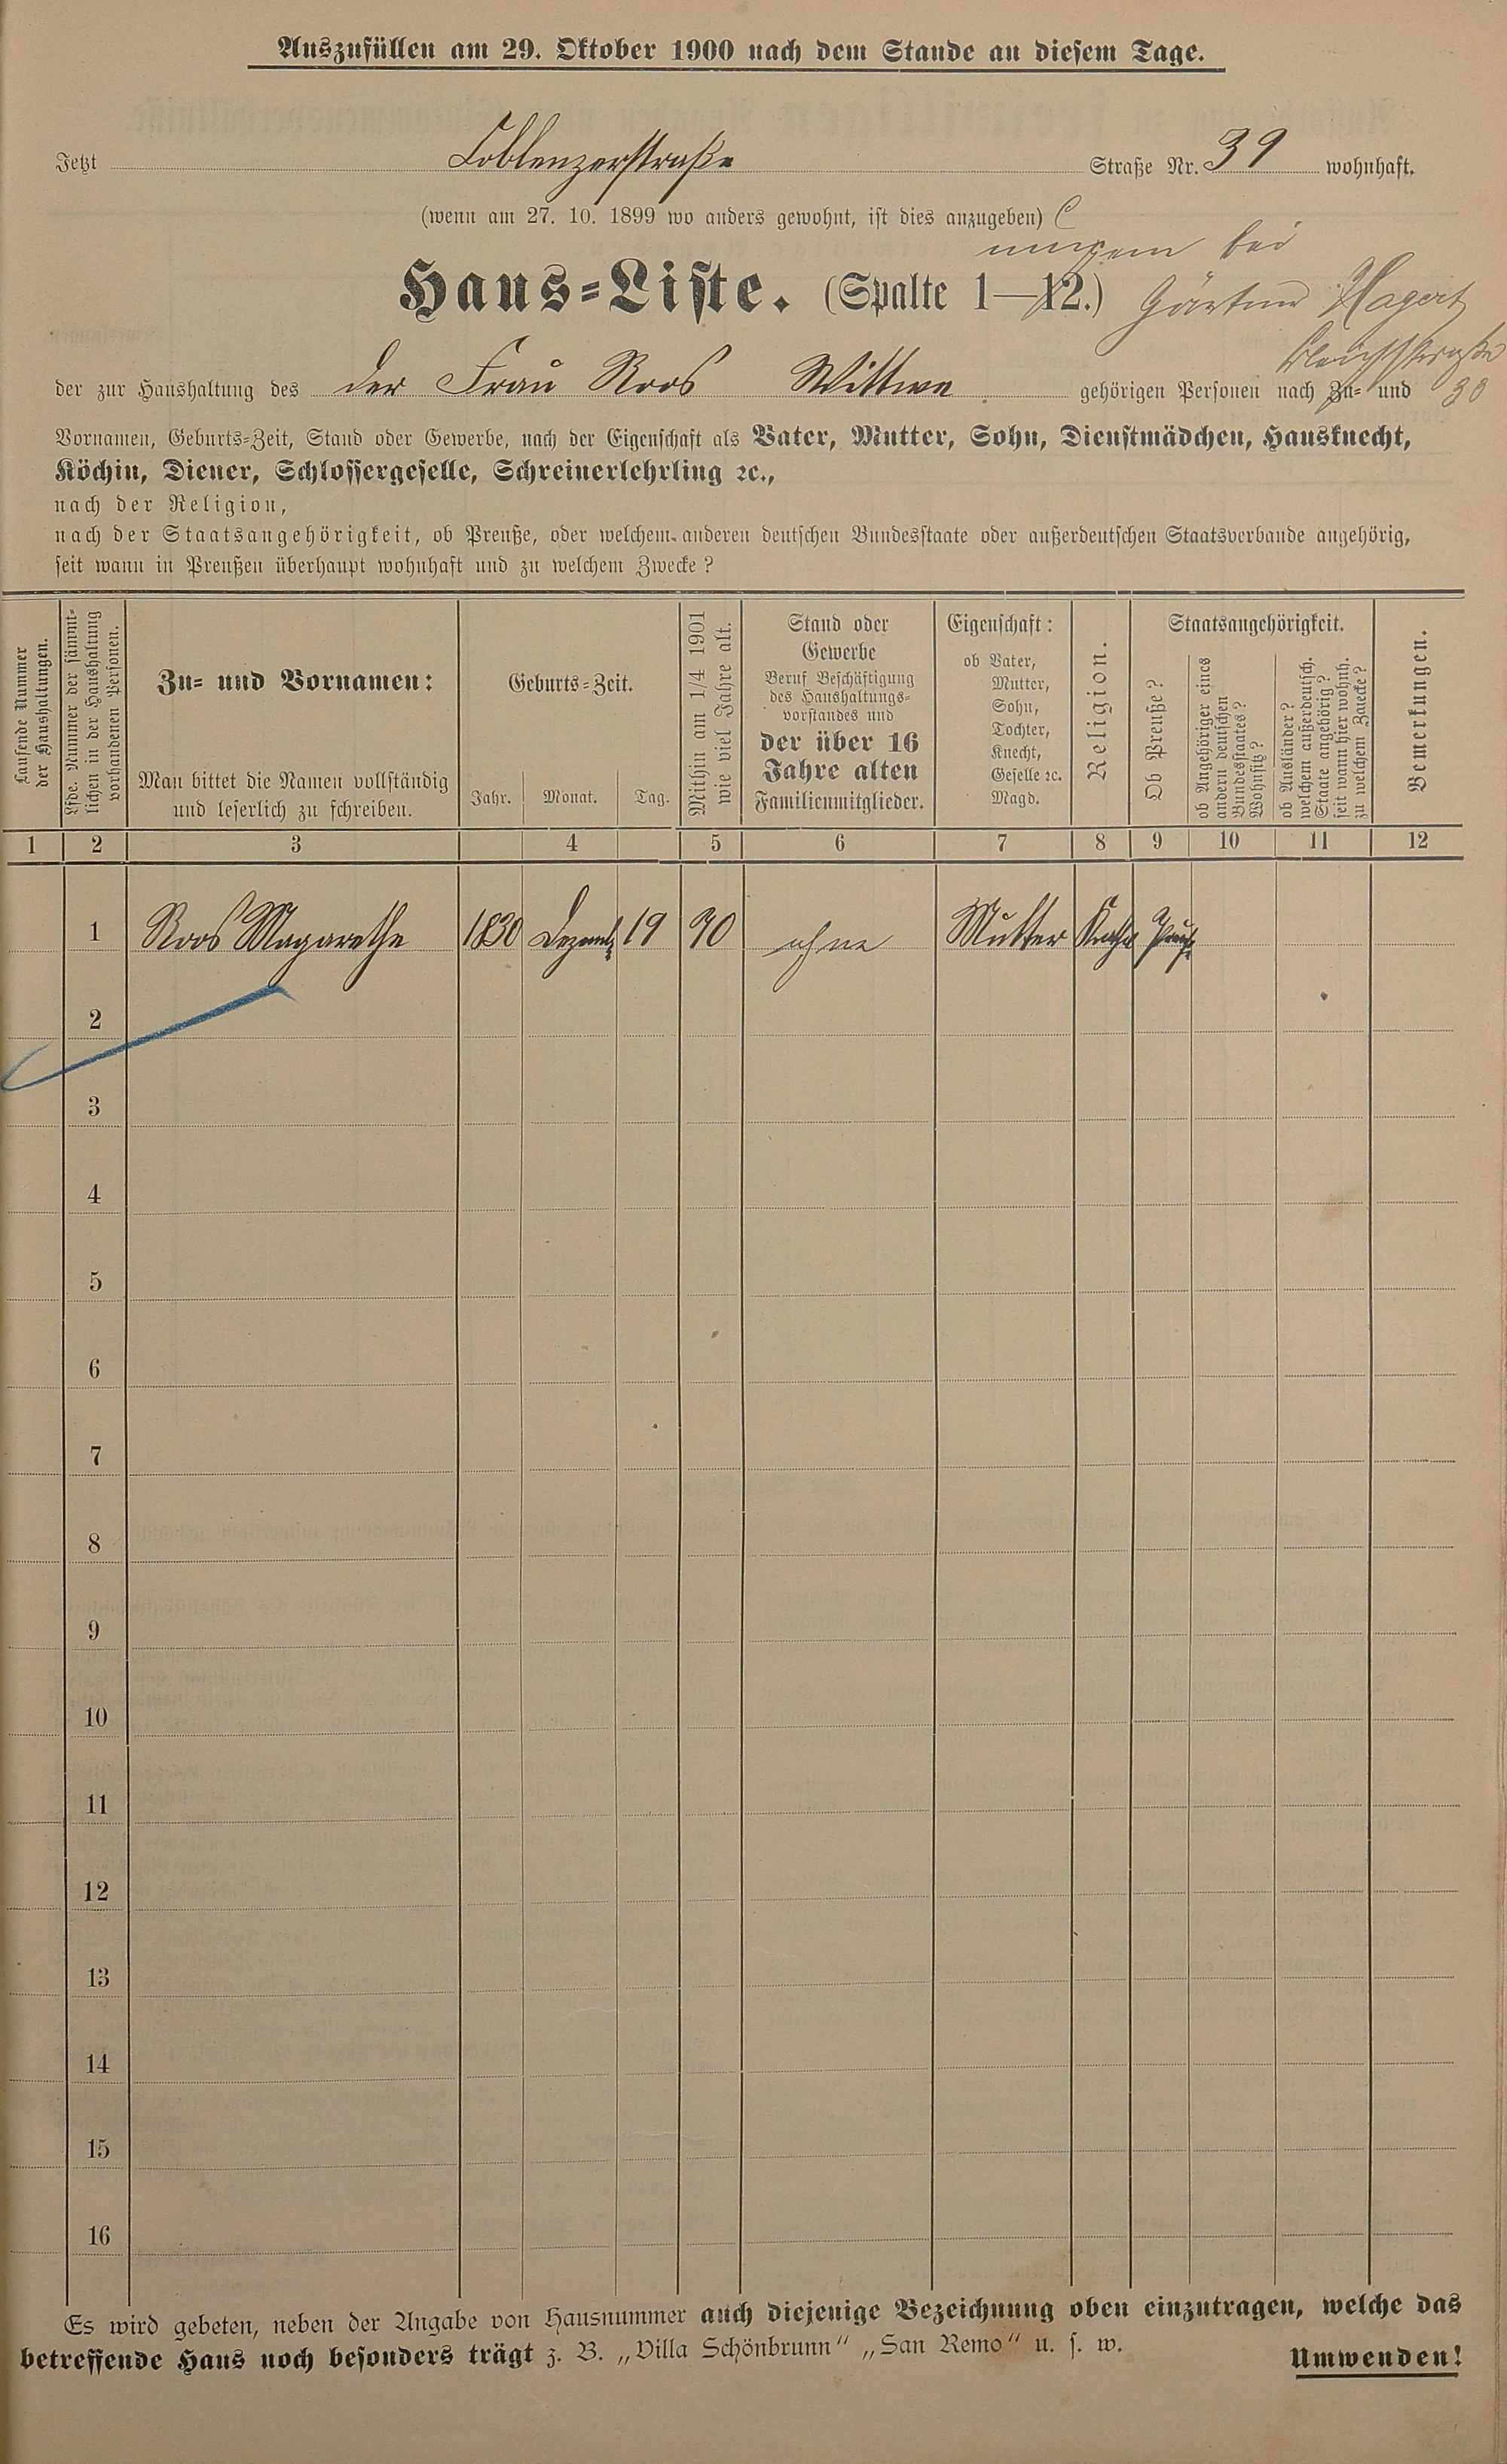 Auszufüllen am 29. Oktober 1900 nach dem Stande an diesem Tage.
Jetzt Coblenzerstraße Straße Nr. 39 wohnhaft.
(wenn am 27. 10. 1899 wo anders gewohnt, ist dies anzugeben)
bei
Haus-Liste. (Spalte 1—12.) Gärtner Hagert
der zur Haushaltung des der Frau Roos Wittwe gehörigen Personen nach Zu- und
Vornamen, Geburts-Zeit, Stand oder Gewerbe, nach der Eigenschaft als Vater, Mutter, Sohn, Dienstmädchen, Hausknecht,
Köchin, Diener, Schlossergeselle, Schreinerlehrling ꝛc.,
nach der Religion,
nach der Staatsangehörigkeit, ob Preuße, oder welchem anderen deutschen Bundesstaate oder außerdeutschen Staatsverbande angehörig,
seit wann in Preußen überhaupt wohnhaft und zu welchem Zwecke?
Laufende Nummer
der Haushaltungen.
Lfde. Nummer der sämmt-
lichen in der Haushaltung
vorhandenen Personen.
Zu- und Vornamen:
Man bittet die Namen vollständig
und leserlich zu schreiben.
Geburts-Zeit.
Jahr. Monat. Tag.
Mithin am 1/4 1901
wie viel Jahre alt.
Stand oder
Gewerbe
Beruf Beschäftigung
des Haushaltungs-
vorstandes und
der über 16
Jahre alten
Familienmitglieder.
Eigenschaft:
ob Vater,
Mutter,
Sohn,
Tochter,
Knecht,
Geselle ꝛc.
Magd.
Religion.
Staatsangehörigkeit.
Ob Preuße?
ob Angehöriger eines
andern deutschen
Bundesstaates?
Wohnsitz?
ob Ausländer?
welchem außerdeutsch.
Staate angehörig?
seit wann hier wohnh.
zu welchem Zwecke?
Bemerkungen.
1 2 3 4 5 6 7 8 9 10 11 12
1 Roos Magarethe 1830 Dezemb 19 70 ohne Mutter Kath Preuß
2
3
4
5
6
7
8
9
10
11
12
13
14
15
16
Es wird gebeten, neben der Angabe von Hausnummer auch diejenige Bezeichnung oben einzutragen, welche das
betreffende Haus noch besonders trägt z. B. „Villa Schönbrunn“ „San Remo“ u. s. w.
Umwenden!